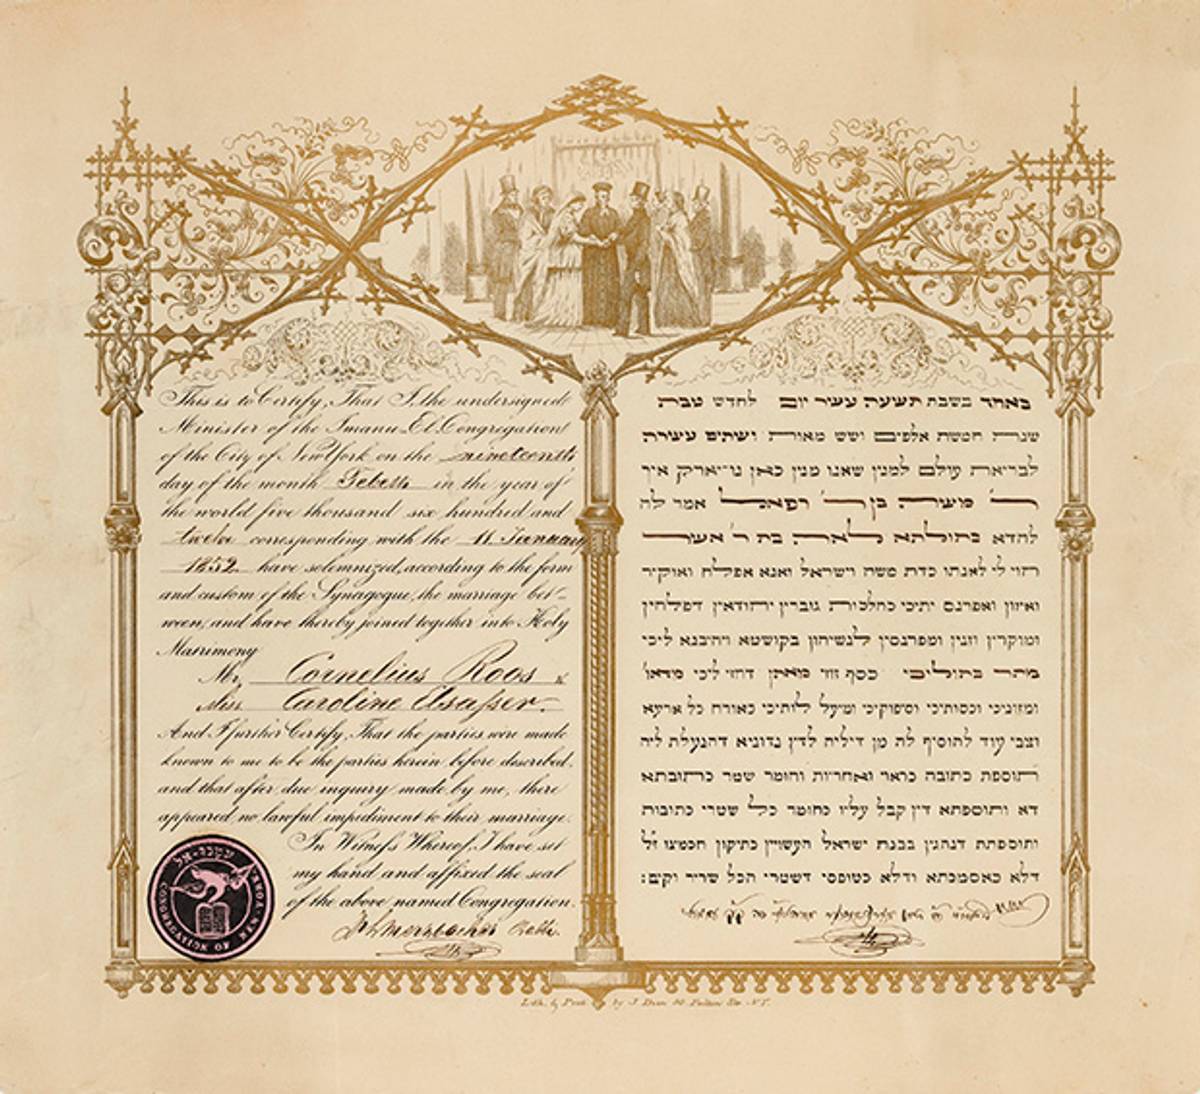 This is to Certify, That I, the undersigned
Minister of the Imanu-El Congregation
of the City of New York on the nineteenth
day of the month Tebeth in the year of
the world five thousand six hundred and
twelve corresponding with the 11. January
1852. have solemnized, according to the form
and custom of the Synagogue, the marriage bet-
ween, and have thereby joined together into Holy
Matrimony
Mr. Cornelius Roos &
Miss Caroline Elsasser.
And I further Certify, That the parties were made
known to me to be the parties herein before described,
and that after due inquiry made by me, there
appeared no lawful impediment to their marriage.
In Witness Whereof, I have set
my hand and affixed the seal
of the above named Congregation.
Merzbacher Rabbi.
עמנו-אל
CONGREGATION OF NEW YORK
באחד בשבת תשעה עשר יום לחדש טבת
שנת חמשת אלפים ושש מאות ושתים עשרה
לבריאת עולם למנין שאנו מנין כאן נויארק איך
ר' משה בן ר' רפאל אמר לה
לחדא בתולתא לאה בת ר' אשר
הוי לי לאנתו כדת משה וישראל ואנא אפלח ואוקיר
ואיזון ואפרנס יתיכי כהלכות גוברין יהודאין דפלחין
ומוקרין וזנין ומפרנסין לנשיהון בקושטא ויהיבנא ליכי
מהר בתוליכי כסף זוזי מאתן דחזי ליכי מדאו'
ומזוניכי וכסותיכי וסיפוקיכי ומיעל לותיכי כאורח כל ארעא
וצבי עוד לתוסיף לה מן דיליה לדין נדוניא דהנעלת ליה
תוספת כתובה כראוי ואחריות וחומר שטר כתובתא
דא ותוספתא דין קבל עליו כחומר כל שטרי כתובות
ותוספתת דנהגין בבנת ישראל העשויין כתיקון חכמינו ז"ל
דלא כאסמכתא ודלא כטופסי דשטרי הכל שריר וקים:
Lith. & Print by J. Dunn Fulton Str. N.Y.